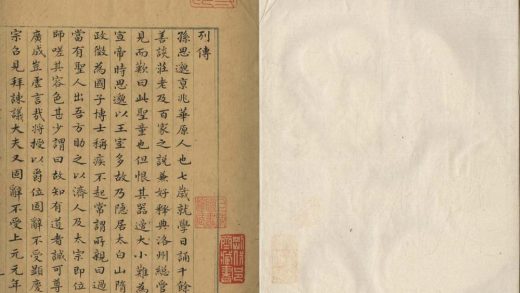 列傳
孫思邈京兆華原人也七歲就學日誦十餘
善談莊老及百家之說兼好釋典洛州總管
見而歎曰此聖童也但恨其器大小難為
宣帝時思邈以王室多故乃隱居太白山隋
政徵為國子博士稱疾不起常謂所親曰過
當有聖人出吾方助之以濟人及太宗即位
師嗟其容色甚少謂曰故知有道者誠可尊
廣成豈虛言哉將授以爵位固辭不受顯慶
宗召見拜諫議大夫又固辭不受上元元年